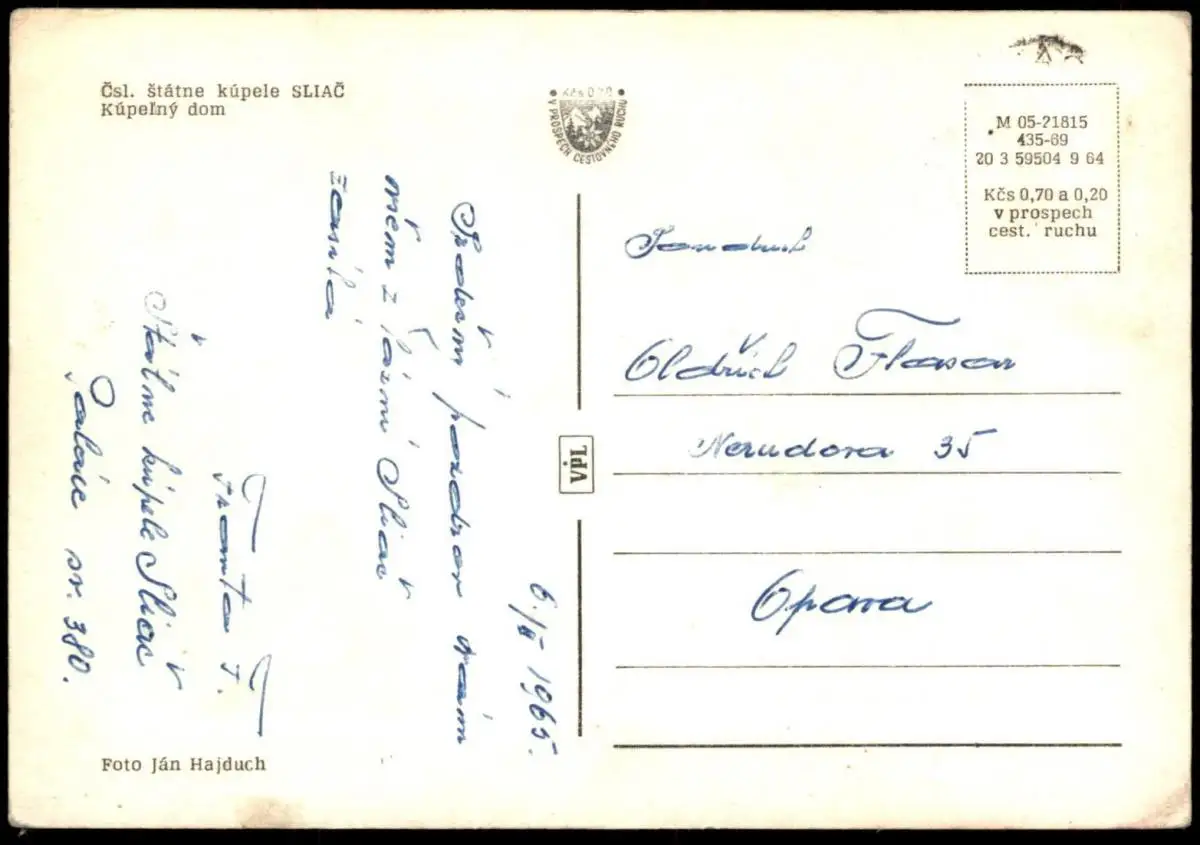 Čsl. štátne kúpele SLIAČ
Kúpeľný dom
Kčs 0,20
V PROSPECH CESTOVNÉHO RUCHU
M 05-21815
435-69
20 3 59504 9 64
Kčs 0,70 a 0,20
v prospech
cest. ruchu
6./II 1965.
Srdečný pozdrav vám
všem z lázní Sliač
zasílá
Franta F.
Státne kúpele Sliač
Palace sv. 380.
VpL
Soudruh
Oldřich Flasar
Nerudova 35
Opava
Foto Ján Hajduch